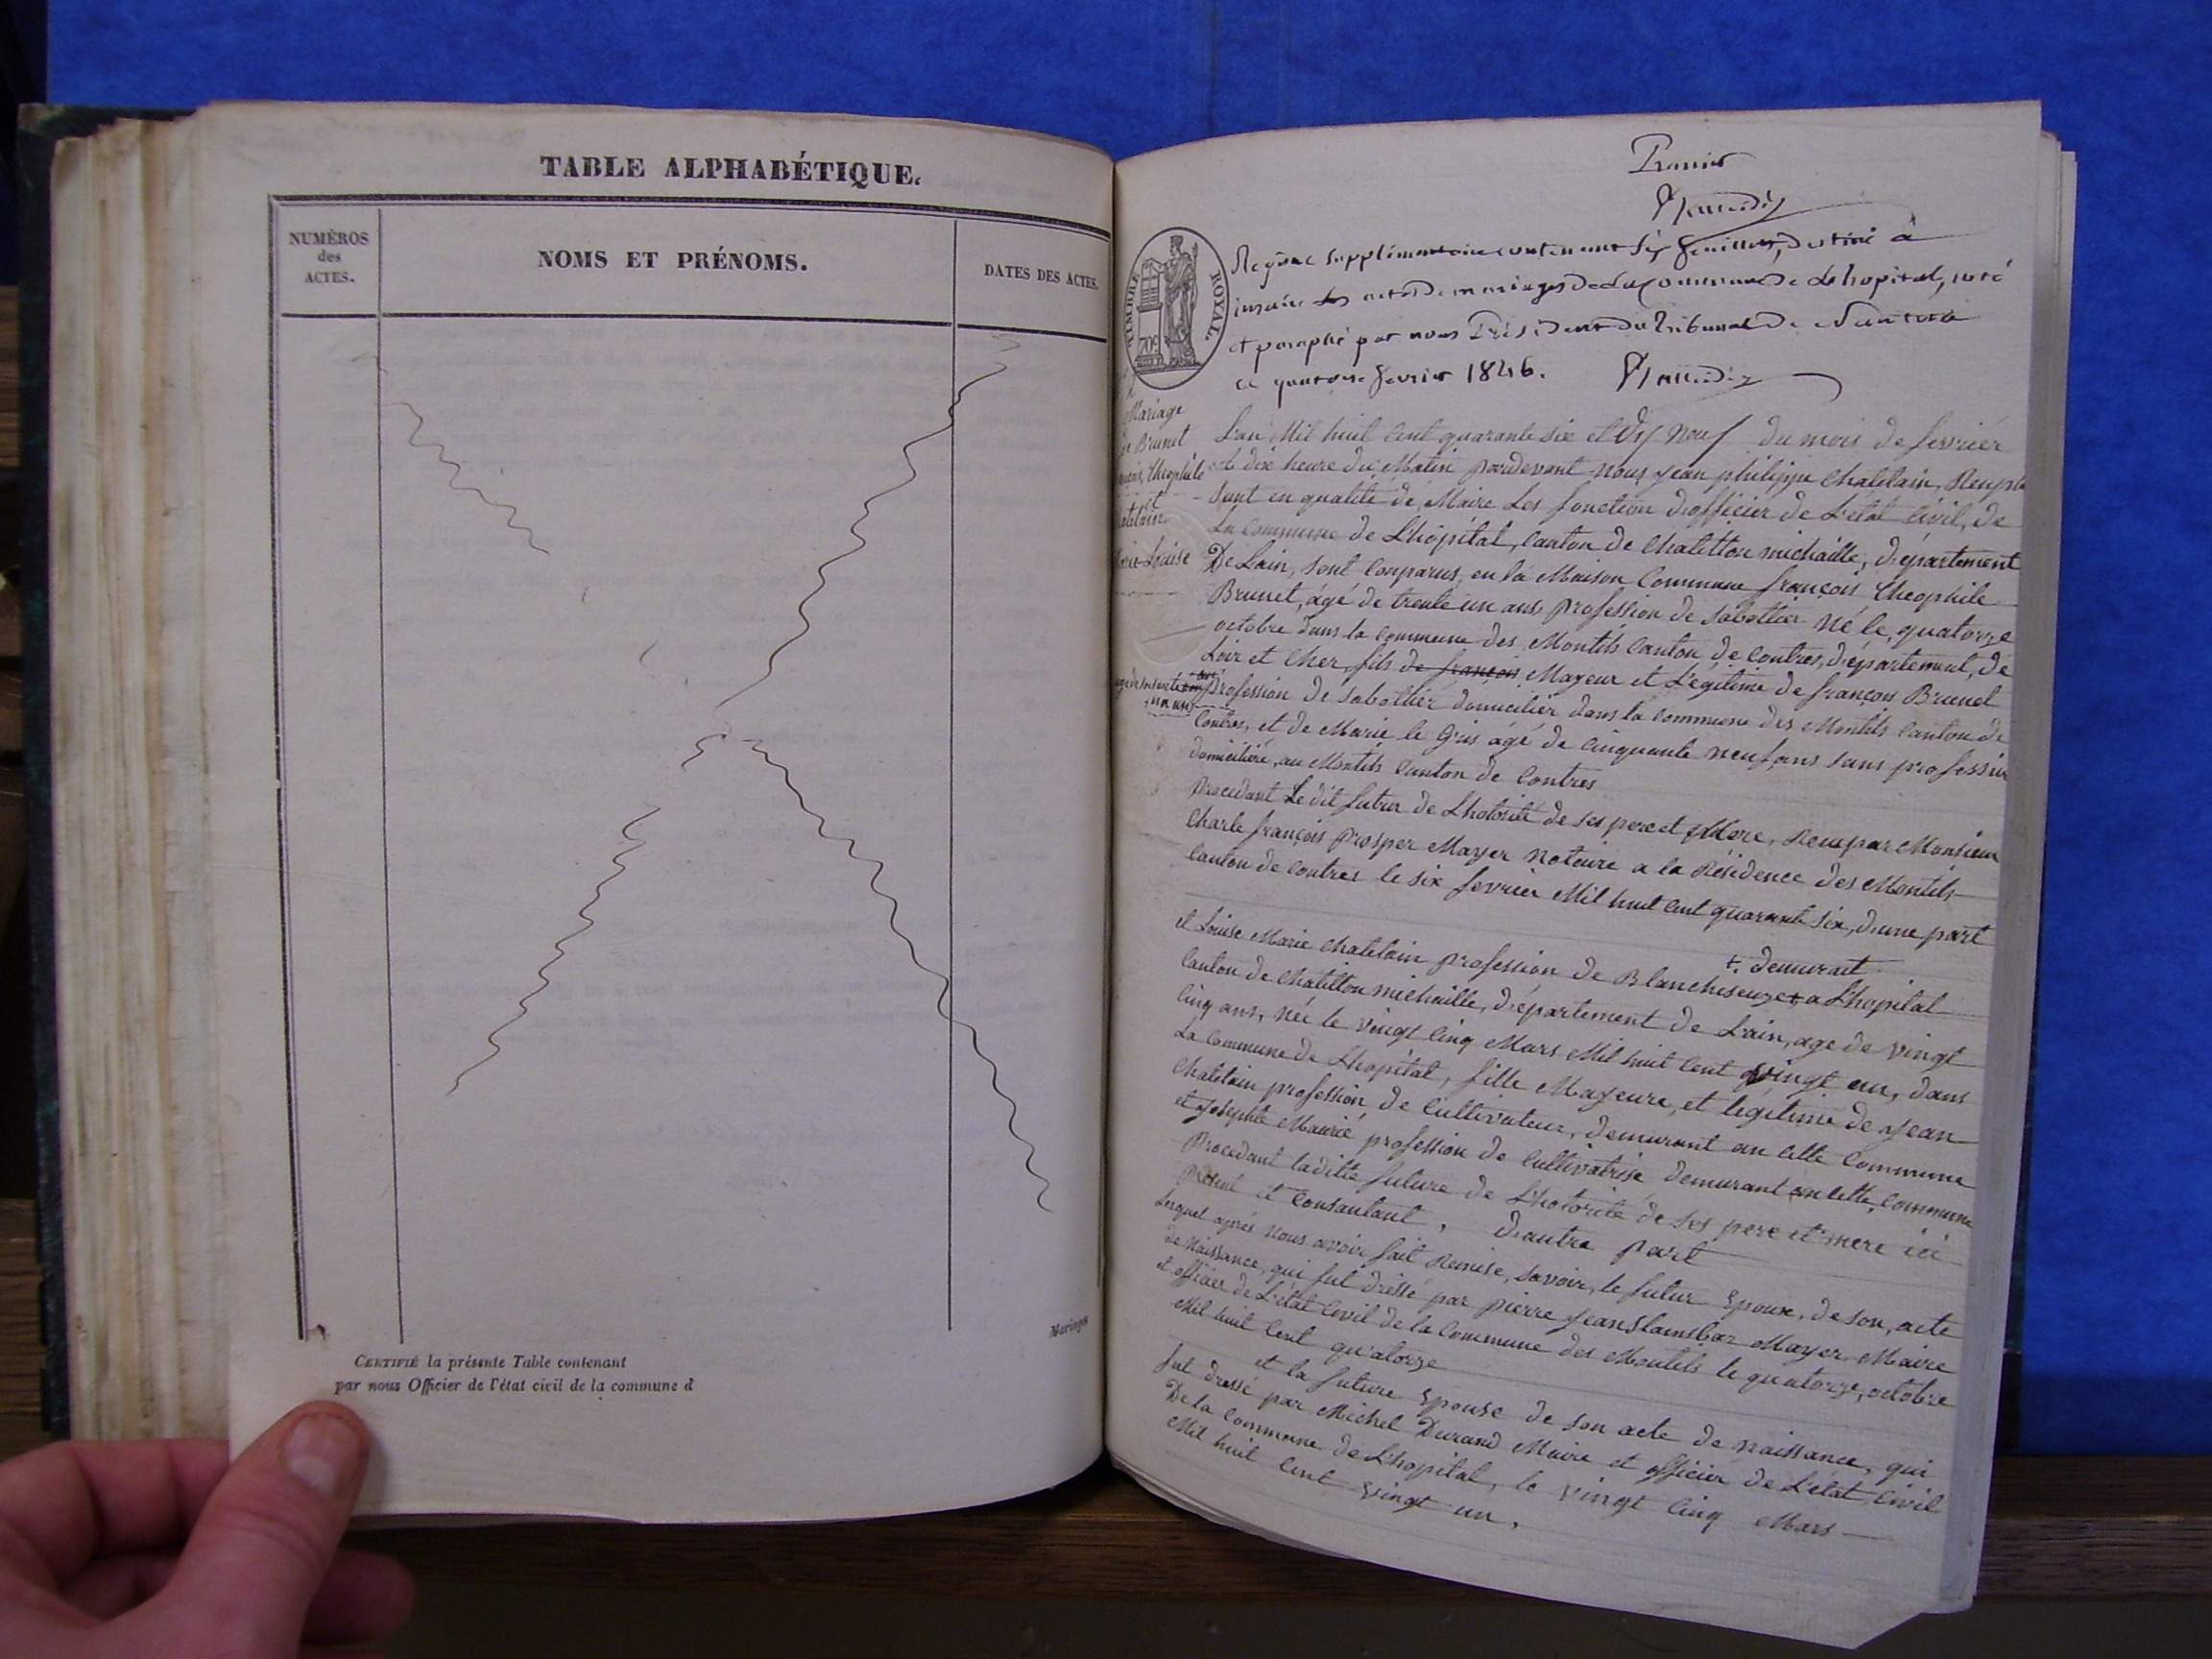 TABLE ALPHABÉTIQUE.
NUMÉROS
des
ACTES.
NOMS ET PRÉNOMS.
DATES DES ACTES.
Mariages
CERTIFIÉ la présente Table contenant
par nous Officier de l'état civil de la commune d
Premier
TIMBRE ROYAL
70c
Registre supplémentaire contenant six feuillets, destiné à
inscrire les actes de mariages de la commune de Lhopital, coté
et paraphé par nous Président du Tribunal de Nantua
ce quatorze fevrier 1846.
Mariage
de Brunet
Théophile
et
Chatelain
Marie Louise
Lan Mil huit Cent quarante six et Dix neuf du mois de fevrier
A dix heure du Matin pardevant nous jean philippe Chatelain, Remplis
sant en qualité de Maire Les fonction d'officier de L'état Civil, de
La Commune de Lhôpital, Canton de Chatillon michaille, département
De Lain, sont Conparus, en la Maison Commune françois Theophile
Brunet, âgé de trente un ans profession de sabottier né le quatorze
octobre dans la Commune des Montils Canton de Contres, département, de
Loir et Cher, fils de françois Mageur et Légitime de françois Brunet
agé de soixante
un ans
profession de sabottier domicilier dans la Commune des Montils Canton de
Contres, et de Marie le Gris âgé de Cinquante neuf ans sans profession
domiciliée, au Montils Canton de Contres
Procedant Le dit futur de Lhotorité de ses pere et Mere, Reçu par Monsieur
Charle françois Prosper Mayer Notaire a la Résidence des Montils
Canton de Contres le six fevrier Mil huit Cent quarante six, d'une part
+ demurait
et Louise Marie Chatelain profession de Blancheseuze + a Lhopital
Canton de Chatillon michaille, département de Lain, age de vingt
Cinq ans, née le vingt Cinq Mars Mil huit Cent vingt un, dans
La Commune de Lhopital, fille Mageure, et legitime de jean
Chatelain profession de Cultivateur, demurant en Cette Commune
et josephte Maurié profession de Cultivatrise demurant en Cette Commune
Procedant ladite future de Lhotorité de ses pere et mere ici
Présent et Consantant, d'autre part
Lequel après nous avoir fait Remise, savoir, le futur Epoux, de son, acte
de naissance, qui fut dréssé par pierre jean Mayer Maire
et officier de L'état Civil de la Commune des Montils le quatorze, octobre
Mil huit Cent quatorze
et la future Epouse de son acte de naissance, qui
fut dressé par Michel Durand Maire et officier de L'état Civil
De la Commune de Lhopital, le vingt Cinq Mars
Mil huit Cent vingt un,